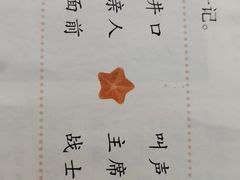 一记。
井口
亲人
面前
叫声
主席
战士